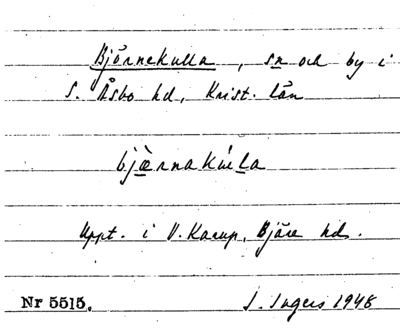 Björnekulla, sn och by i
S. Åsbo hd, Krist. län
bjæ̀rnakúlla
Uppt. i V. Karup, Bjäre hd.
Nr 5515. I. Ingers 1948